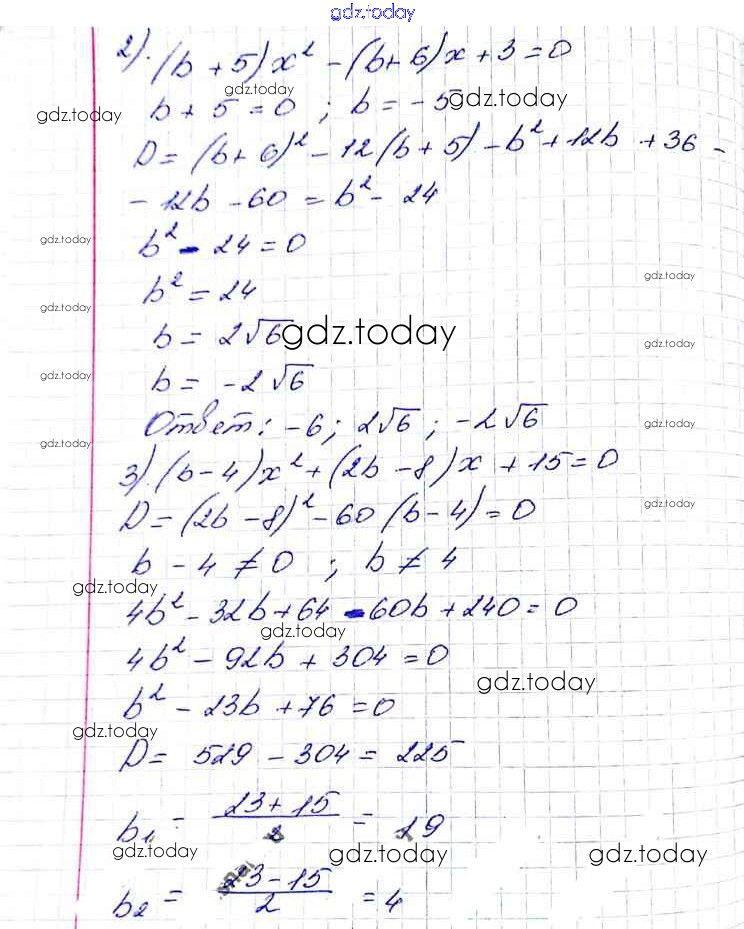 gdz.today
2). (b + 5)x² - (b + 6)x + 3 = 0
gdz.today
b + 5 = 0 ; b = - 5
gdz.today
gdz.today
D = (b + 6)² - 12(b + 5) - b² + 12b + 36 -
- 12b - 60 = b² - 24
gdz.today
b² - 24 = 0
gdz.today
b² = 24
gdz.today
b = 2√6
gdz.today
gdz.today
gdz.today
b = - 2√6
Ответ: - 6 ; 2√6 ; - 2√6
gdz.today
gdz.today
3). (b - 4)x² + (2b - 8)x + 15 = 0
D = (2b - 8)² - 60 (b - 4) = 0
gdz.today
b - 4 ≠ 0 ; b ≠ 4
gdz.today
4b² - 32b + 64 - 60b + 240 = 0
gdz.today
4b² - 92b + 304 = 0
gdz.today
b² - 23b + 76 = 0
gdz.today
D = 529 - 304 = 225
b₁ = (23 + 15)/2 = 19
gdz.today
gdz.today
gdz.today
b₂ = (23 - 15)/2 = 4